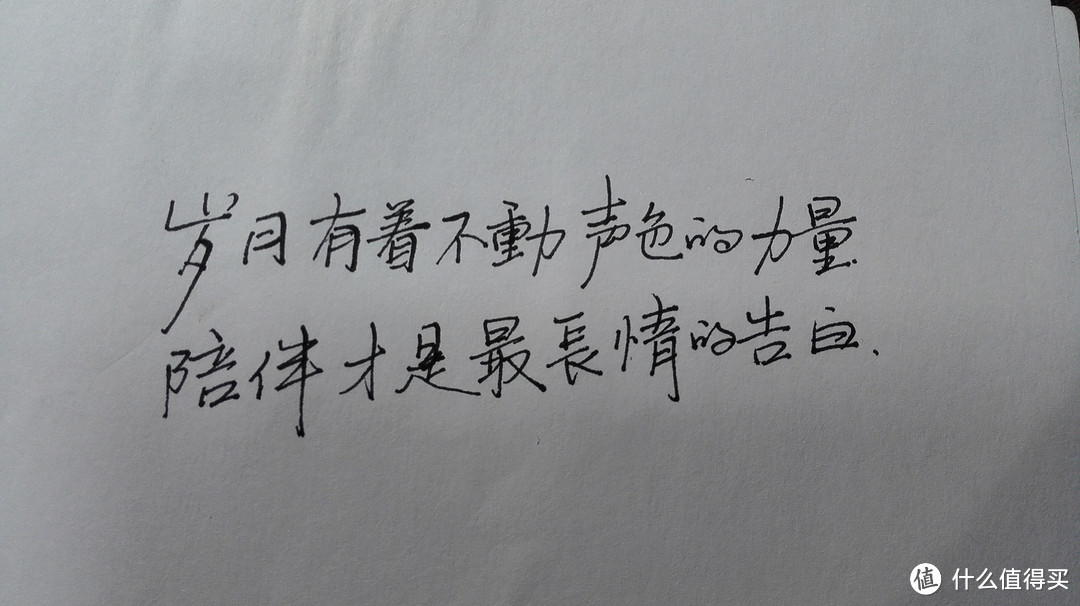 岁月有着不動声色的力量
陪伴才是最長情的告白.
值 什么值得买